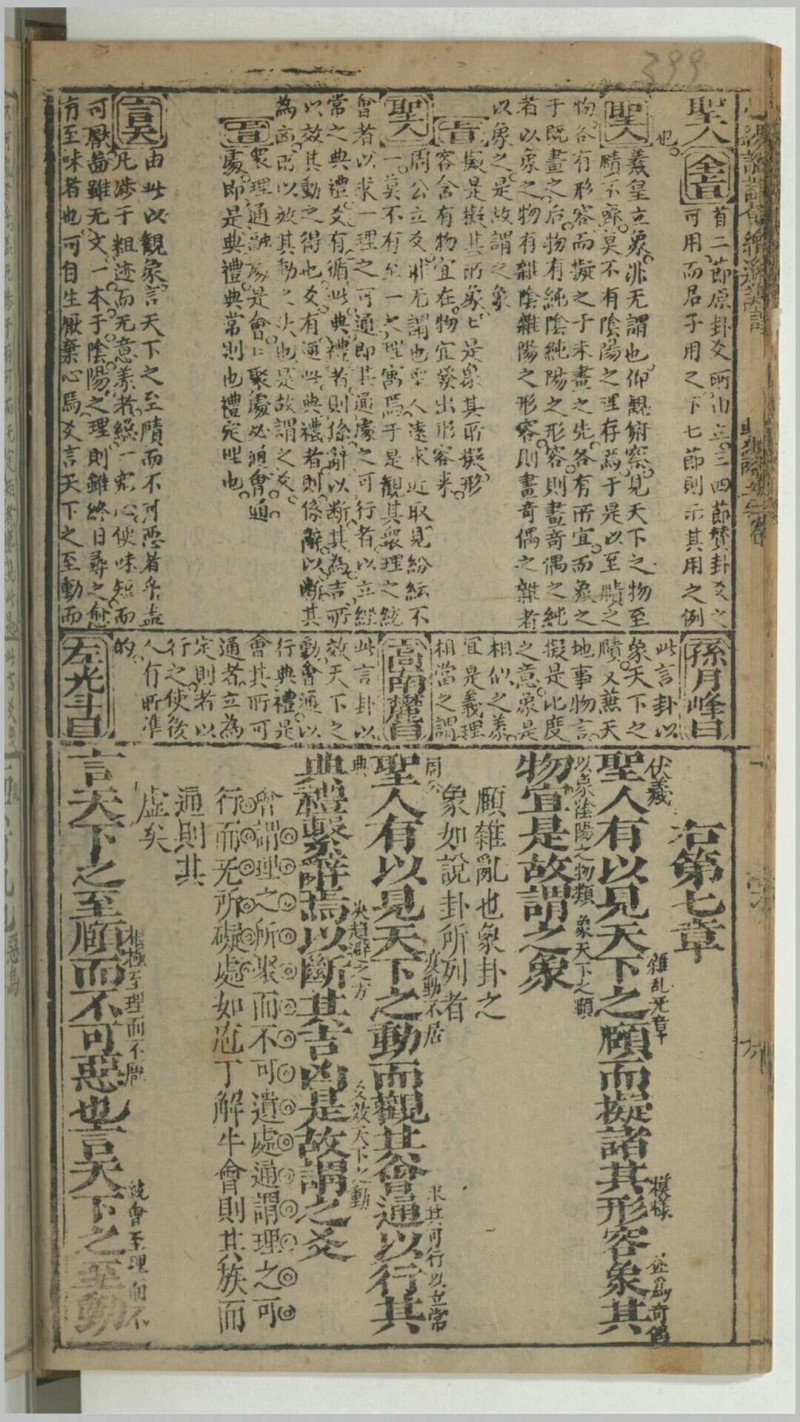 399
聖人 全旨 首二節原卦爻所由立三四節贊卦爻之
可用而君子用之下七節則示其用之例
也
聖人 羲皇立象非无謂也仰觀俯察見天下之物至
賾不齊莫不有陰陽之理存焉于是以至賾之
物各有形容而擬之于未畫之先各有所宜而象之
于既畫之后物有純陰純陽之形容則畫奇偶之純
者以象之物有雜陰雜陽之形容則畫奇偶之雜者
以象之是故謂之象
旨 擬是擬其所象象是象其所擬形
容舍有物宜在物宜發出形容來
聖人 周公立爻非无謂也聖人遠求近取見紛紜不
一莫不有至一之理寓焉于是觀其衆理之統
會者以求一理之可通即其通處之可行者以立經
常之典禮爻有循此典禮者則係辭以斷其為吉所
以效其動之得也爻有違此典禮者則係辭以斷其
為凶所以效其動之失也是故謂之爻
旨 衆理通融處是會會聚處必通會通
處即是典禮典常則也禮定理也
言天 由此以觀象言天下之至賾而不可惡者乎盖
凡涉于粗迹而无意義者綫一究心便味短而
可厭啚雖无文一本于陰陽之理則雖終日尋之愈
有至味者也可自生厭棄心焉爻言天下之至動而
孫月峰曰
此言卦以
象天下之
賾又蕪天
地事物言
擬是比度
之意象是
相似之義
宜是義理
相當之謂
高胡麓曰
此言卦以
效天下之
動會通以
行典禮是
會其所可
通者立為
定則者以
行之使後
人有所準
的
左光斗曰
右第七章
聖人有以見天下之賾而擬諸其形容象其
伏羲
雜乱无章
模樣
並為奇偶
以象陰陽之物類
象天下之賾
物宜是故謂之象
賾雜亂也象卦之
象如說卦所列者
聖人有以見天下之動而觀其會通以行其
周公
變動不居
求其可行以立常
典
典禮繫辭焉以斷其吉凶是故謂之爻
爻趨避之方
爻效天下之動
會謂理之所聚而不可遺處通謂理之可
行而无所礙處如庖丁解牛會則其族而
通則其
虚矣
言天下之至賾而不可惡也言天下之至動
推極至理而不厭
統會至理而不